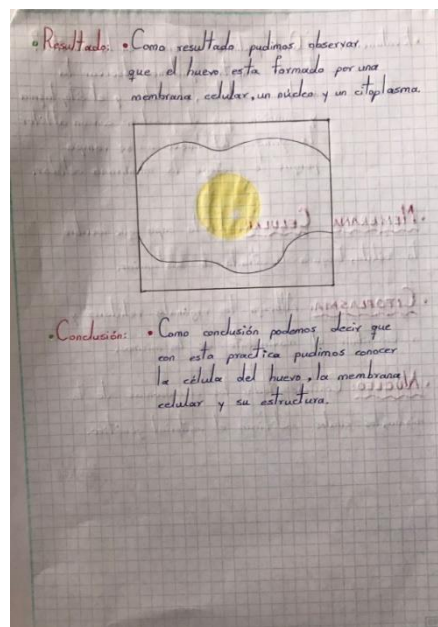 • Resultado: • Como resultado pudimos observar
que el huevo esta formado por una
membrana celular, un núcleo y un citoplasma.
• Conclusión: • Como conclusión podemos decir que
con esta practica pudimos conocer
la célula del huevo, la membrana
celular y su estructura.